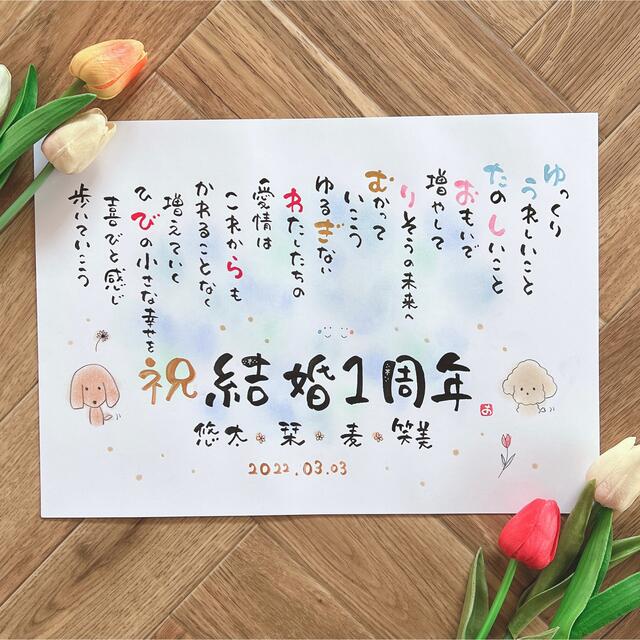 ゆっくり
うれしいこと
たのしいこと
おもいで
増やして
りそうの未来へ
むかって
いこう
ゆるぎない
わたしたちの
愛情は
これからも
かわることなく
増えていく
ひびの小さな幸せを
喜びと感じ
歩いていこう
祝結婚1周年
悠太 栞 麦 笑美
2022.03.03
お